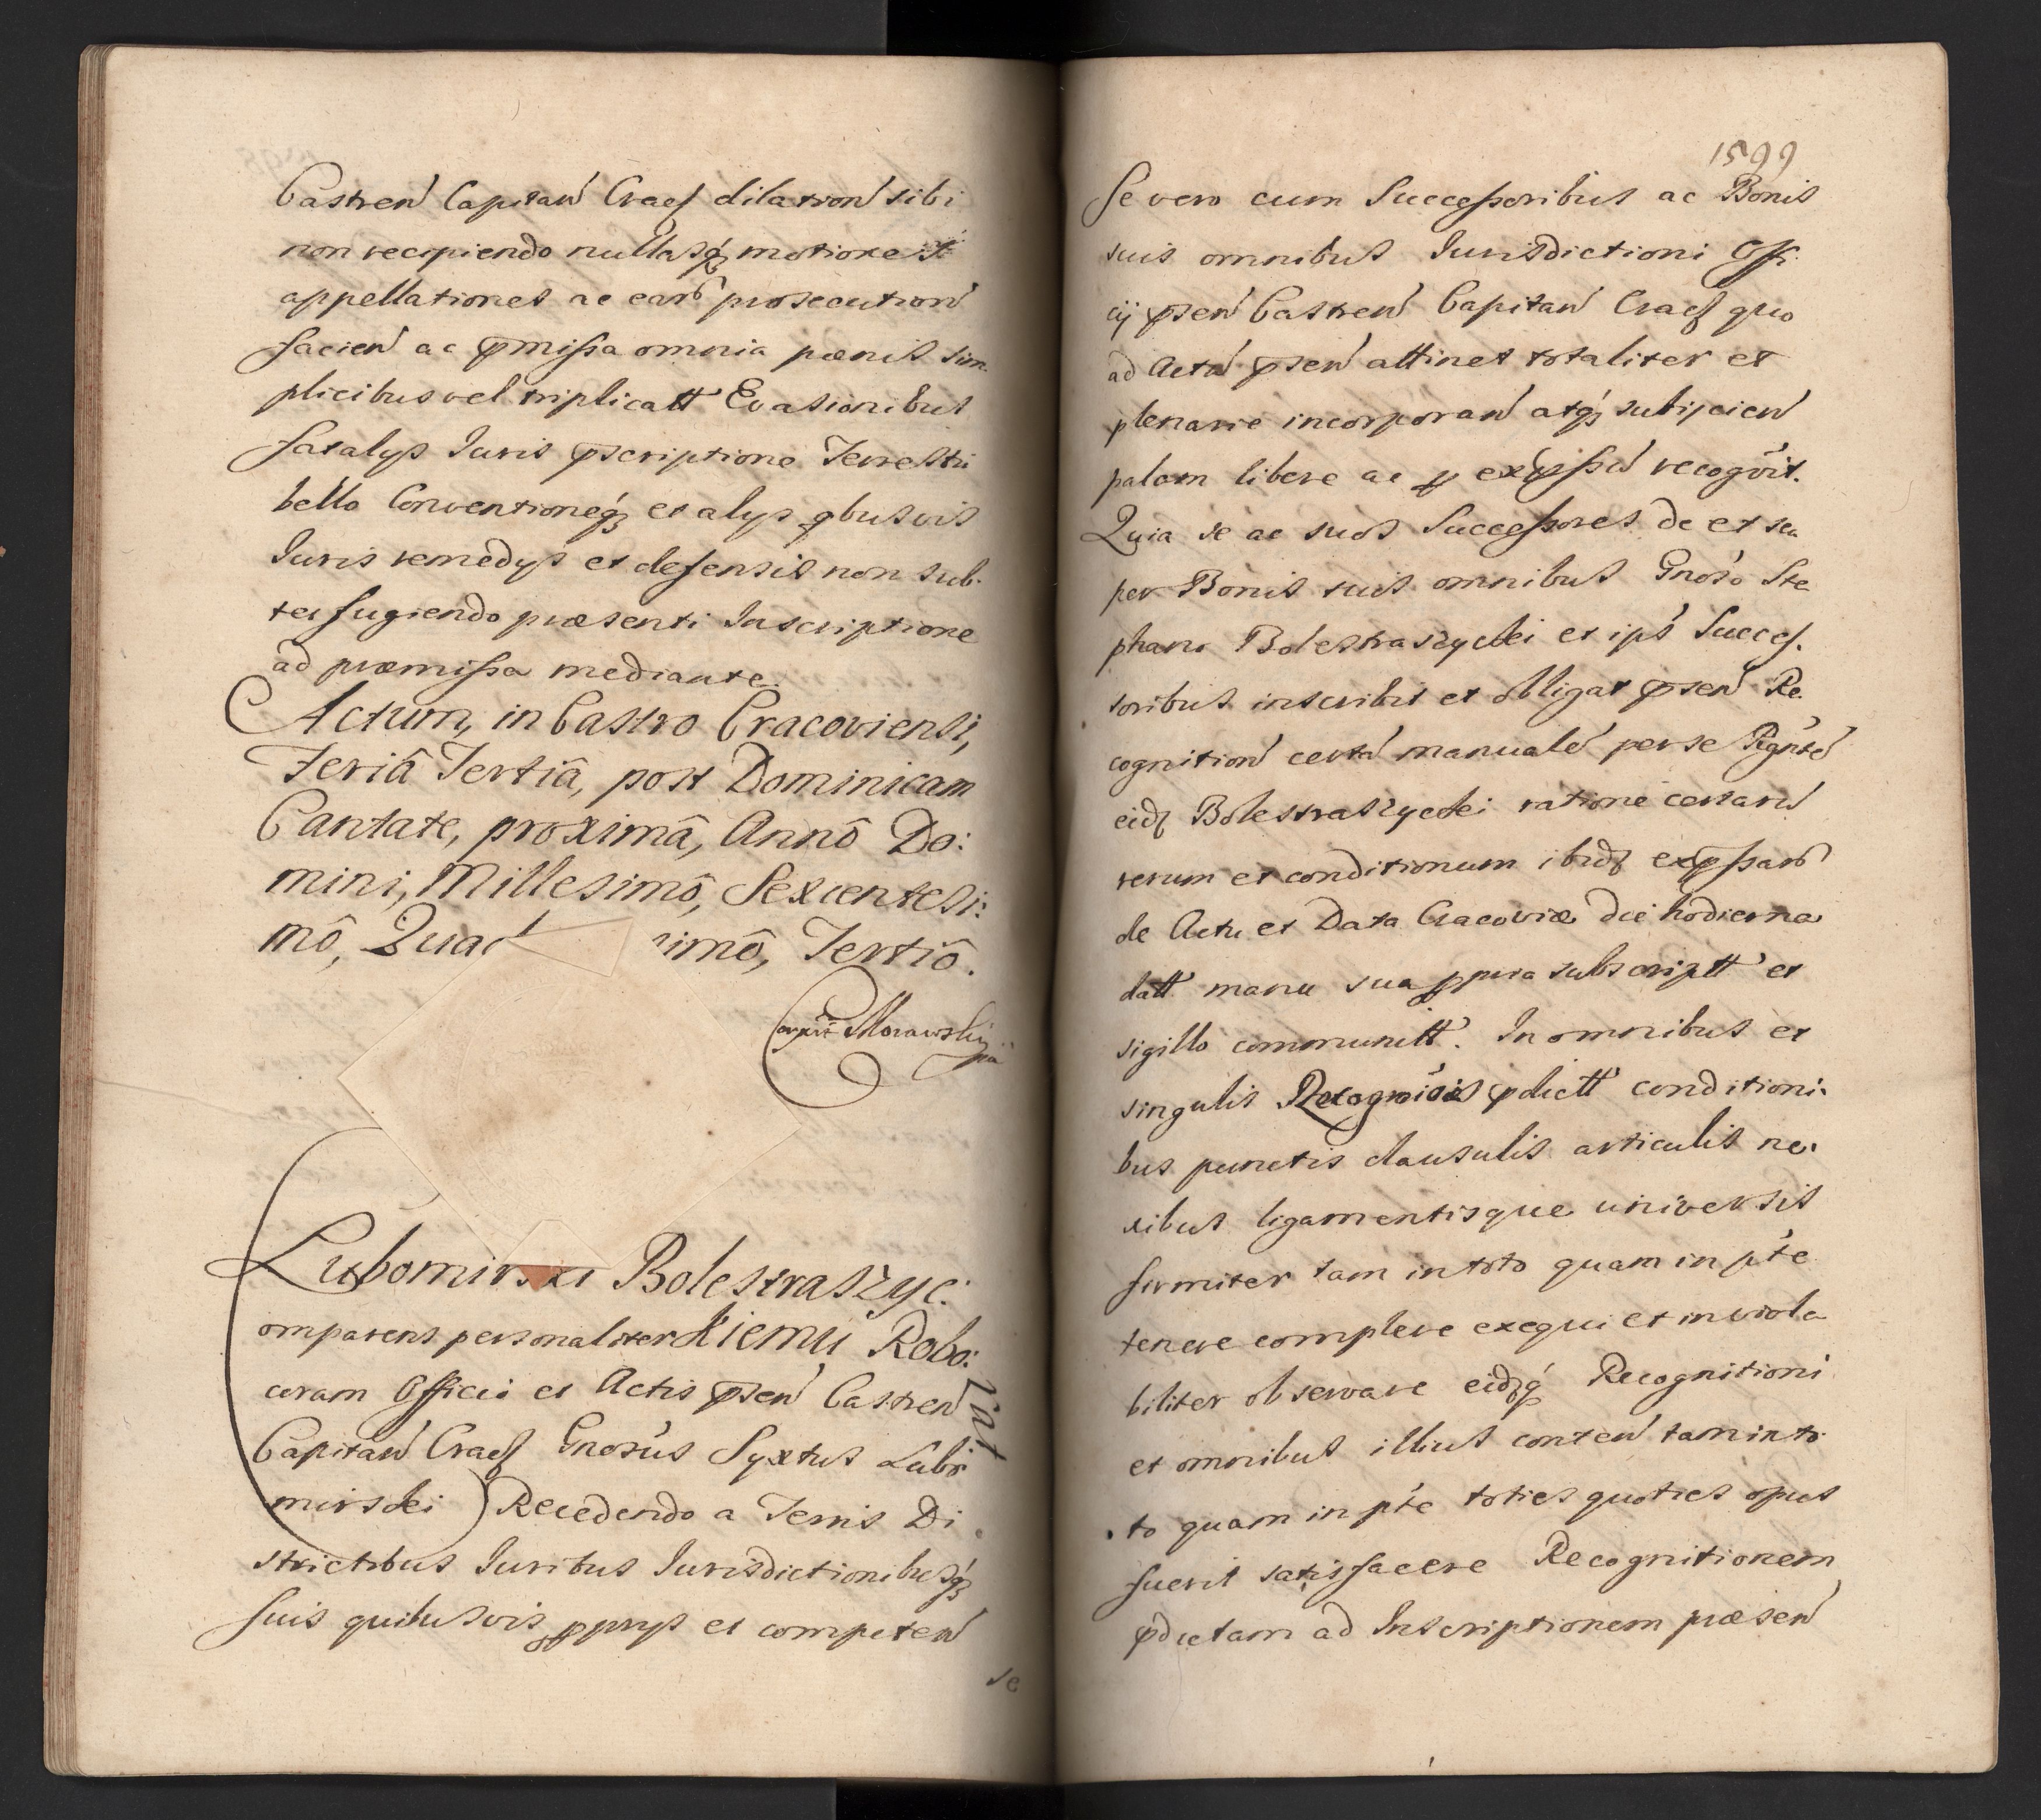 Castreń Capitań Cracȝ dilationń sibi
non recipiendo nullasqȝ motiones
appellationes ac earb prosecutioń
facień ac pmissa omnia pœnis sim-
plicibus vel triplicatt Evasionibus
fatalijs Iuris pscriptione Terrestri
bello Conventioneqȝ et alijs qbusvis
Iuris remedijs et defensis non sub-
terfugiendo præsenti Inscriptione
ad præmissa mediante.
Actum, in Castro Cracoviensi,
Feriâ Tertiâ, post Dominicam
Cantate, proximâ, Annô Do:
mini, Millesimô, Sexcentesi:
mô, Quad imô, Tertiô.
Morawski
Lubomirski Bolestraszyc:
omparens personaliter kiemu Robo:
coram Officio et Actis pseń Castreń rat
Capitań Cracȝ Gnosus Syxtus Lubo
mirski) Recedendo a Terris Di
strictibus Iuribus Iurisdictionibusqȝ
suis quibusvis pprijs et competeń
se
1599
Se vero cum Successoribus ac Bonis
suis omnibus Iurisdictioni Offi
cij pseń Castreń Capitań Cracȝ quo
ad Acta pseń attinet totaliter et
plenarie incorporań atqȝ subijcień
palam libere ac p expssū recogvit.
Quia se ac suos Successores de et su
per Bonis suis omnibus Gnoso Ste
phano Bolestraszycki et ips Succes.
soribus inscribit et obligat pseń Re
cognitioń certā manualē per se
eidȝ Bolestraszycki ratione certarū
rerum et conditionum ibidȝ expssarb
de Actu et Data Cracoviæ die hodierna
datt manu sua ppria subscriptt et
sigillo communitt. In omnibus et
singulis Recogniois pdictt conditioni-
bus punctis clausulis articulis ne-
xibus ligamentisque universis
firmiter tam in toto quam in pte
tenere complere exequi et inviola
biliter observare eidȝqȝ Recognitioni
et omnibus illius conteń tam in to
to quam in pte toties quoties opus
fuerit satisfacere Recognitionem
pdictam ad Inscriptionem præseń